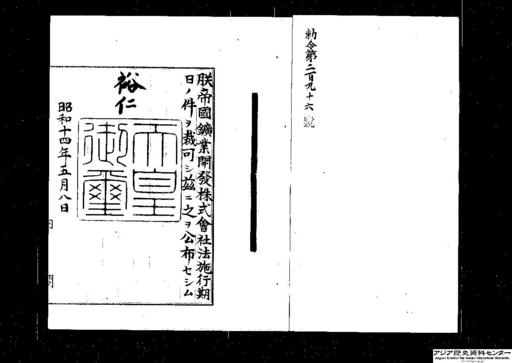 勅令第二百九十六號
朕帝國鑛業開發株式會社法施行期
日ノ件ヲ裁可シ茲ニ之ヲ公布セシム
裕仁
天皇
御璽
昭和十四年五月八日
内閣
アジア歴史資料センター
Japan Center for Asian Historical Records